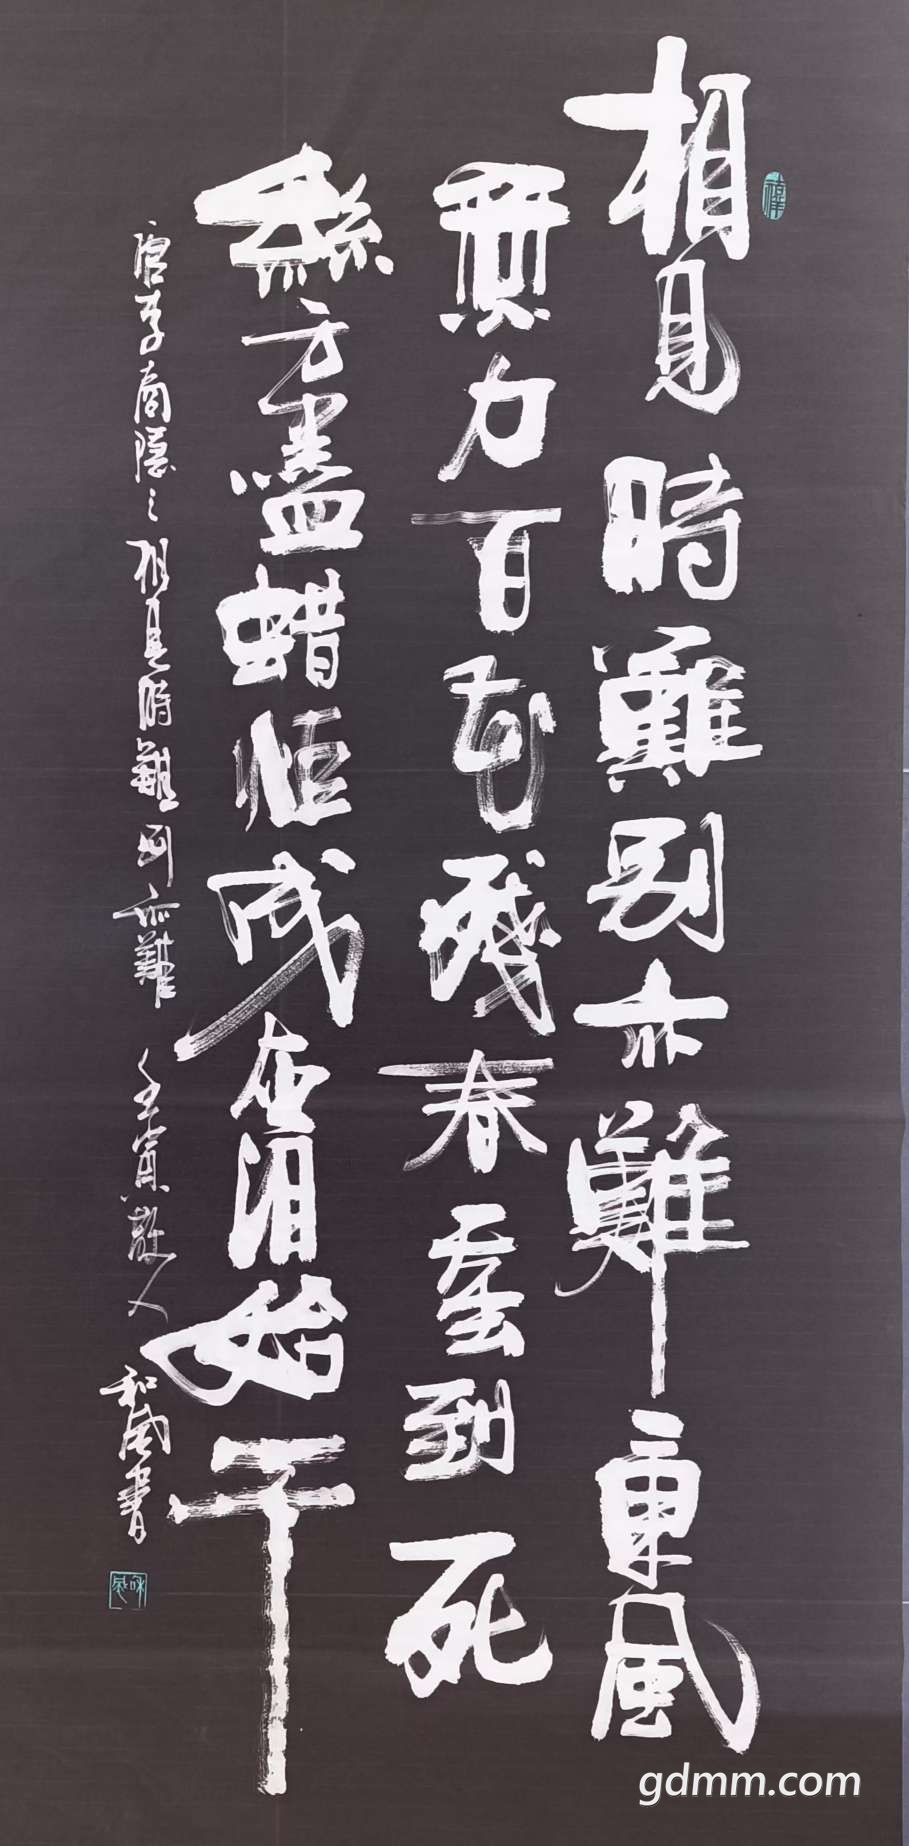 相見時難別亦難東風
無力百花殘春蚕到死
絲方盡蜡炬成灰泪始干
唐李商隱之相見時難別亦難 壬寅散人 和風書
gdmm.com